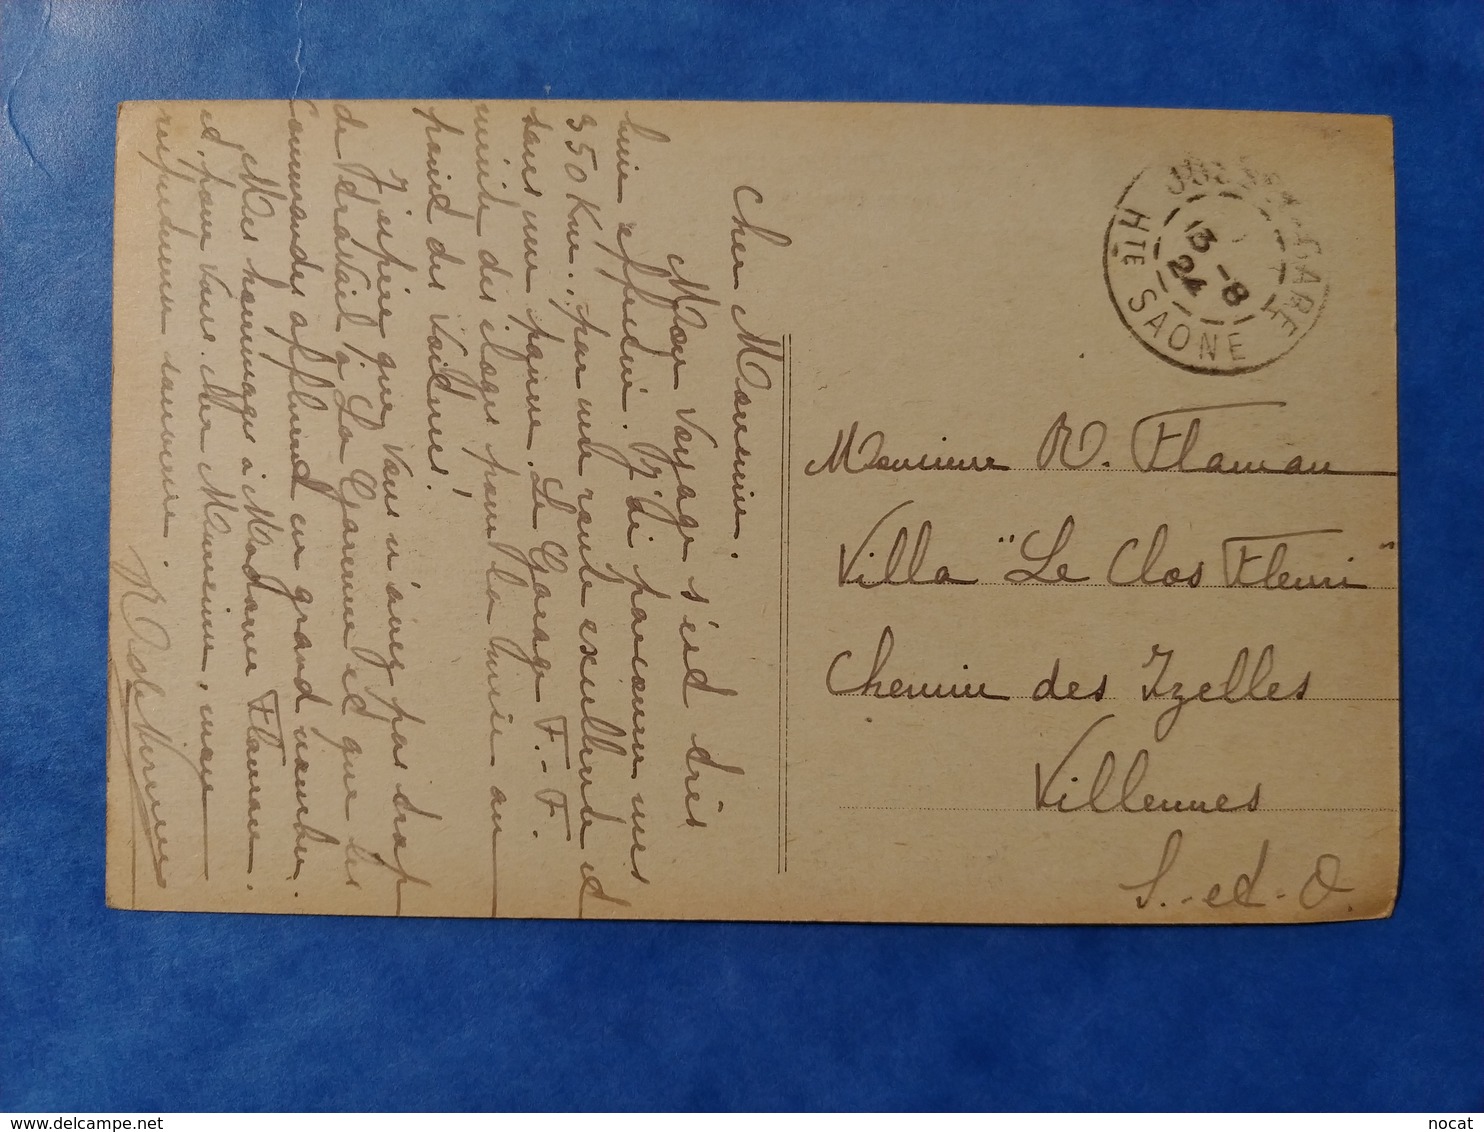 Cher Monsieur.
Mon voyage s'est très
bien effectué. J'ai parcouru mes
350 Km., par une route excellente et
sans une panne. Le Garage F.-F.
mérite des éloges pour la mise au
point des Voitures!
J'espère que vous n'avez pas trop
de travail à La Garenne et que les
Commandes affluent en grand nombre.
Mes hommages à Madame Flaman.
et, pour Vous, Cher Monsieur, mon
respectueux souvenir.
JUSSEY-GARE
3 -8
24
HTE SAONE
Monsieur R. Flaman
Villa "Le Clos Fleuri"
Chemin des Izelles
Villennes
S.-et-O.
nocat